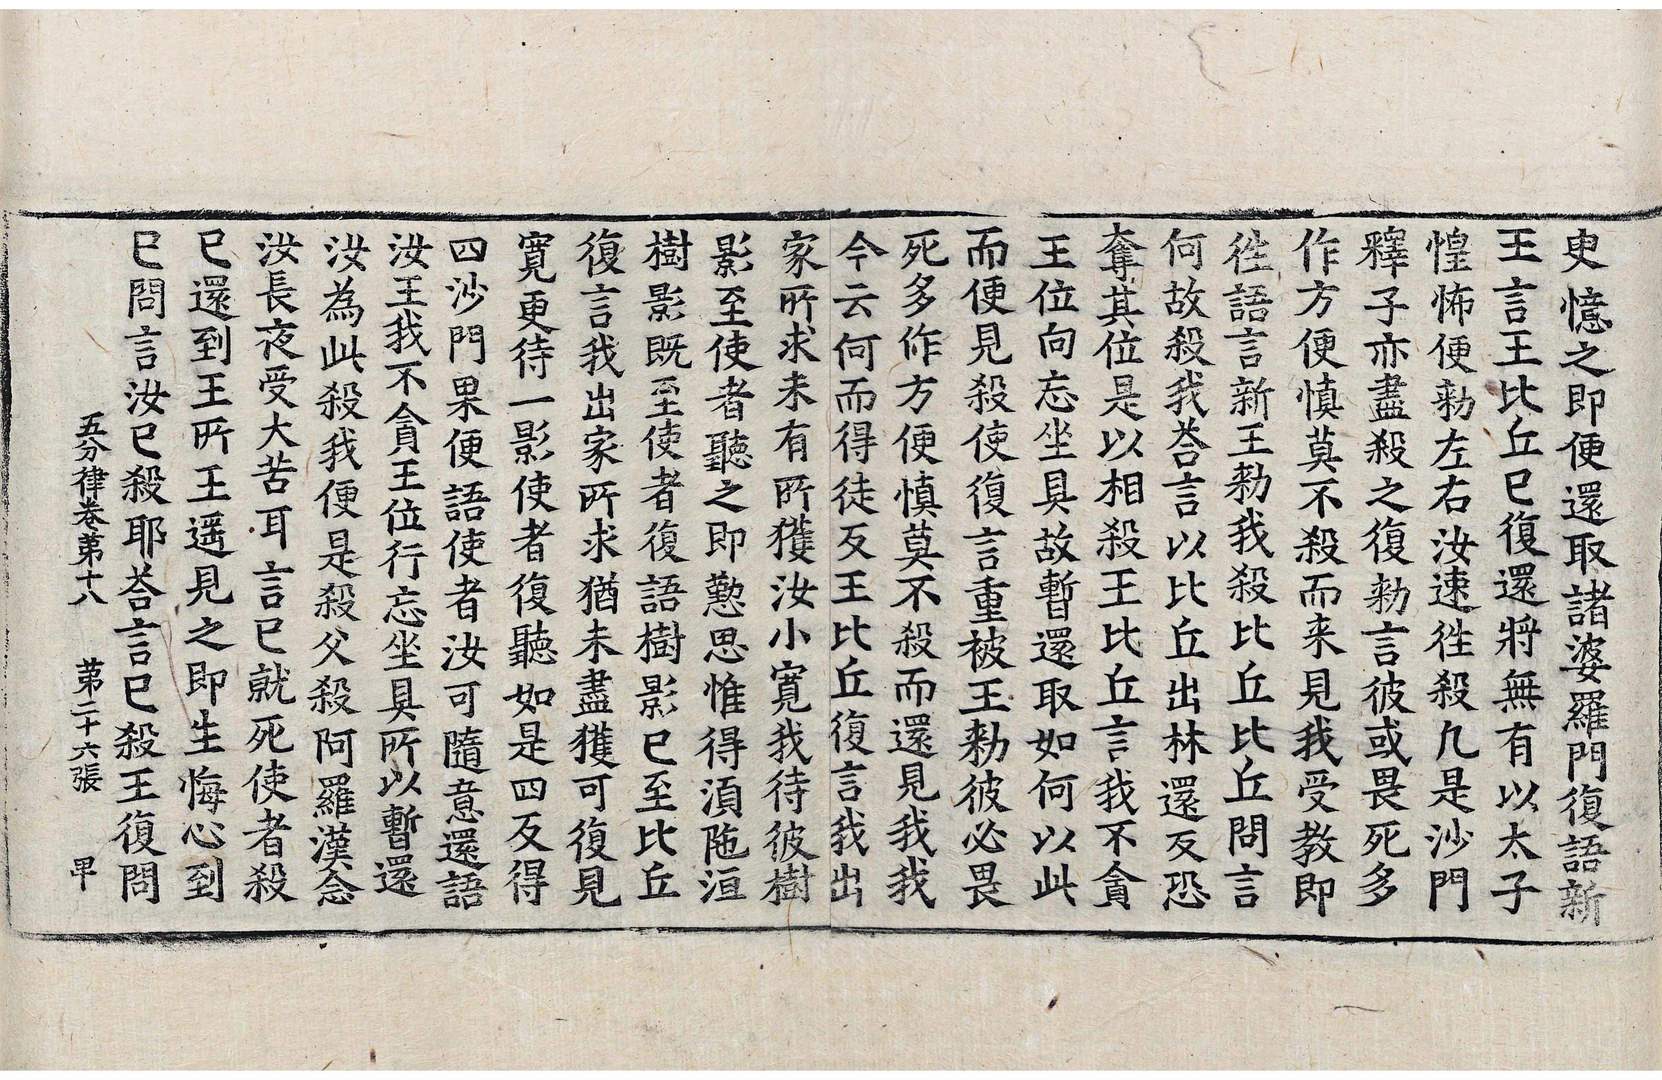 史憶之即便還取諸婆羅門復語新
王言王比丘已復還將無有以太子
惶怖便勑左右汝速徃殺凢是沙門
釋子亦盡殺之復勑言彼或畏死多
作方便慎莫不殺而来見我受教即
徃語言新王勑我殺比丘比丘問言
何故殺我荅言以比丘出林還反恐
奪其位是以相殺王比丘言我不貪
王位向忘坐具故暫還取如何以此
而便見殺使復言重被王勑彼必畏
死多作方便慎莫不殺而還見我我
今云何而得徒反王比丘復言我出
家所求未有所獲汝小寬我待彼樹
影至使者聽之即懃思惟得湏陁洹
樹影既至使者復語樹影已至比丘
復言我出家所求猶未盡獲可復見
寬更待一影使者復聽如是四反得
四沙門果便語使者汝可隨意還語
汝王我不貪王位行忘坐具所以暫還
汝為此殺我便是殺父殺阿羅漢念
汝長夜受大苦耳言已就死使者殺
已還到王所王遥見之即生悔心到
已問言汝已殺耶荅言已殺王復問
五分律卷第十八 第二十六張 甲